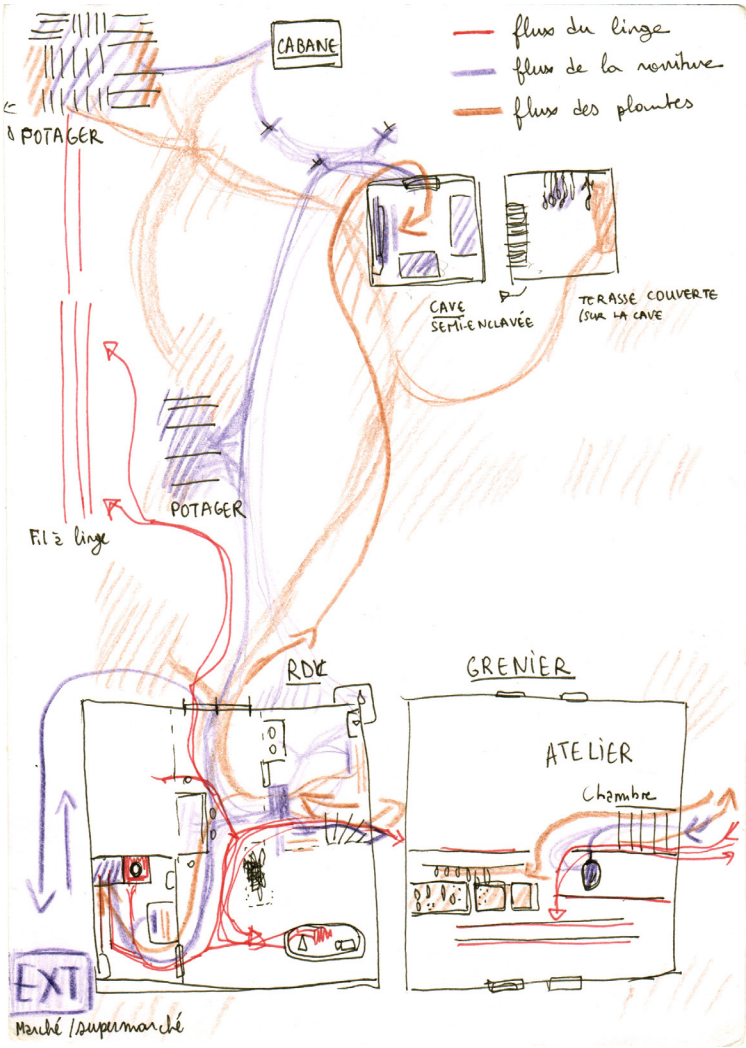 CABANE
flux du linge
flux de la nouriture
flux des plantes
POTAGER
CAVE
SEMI-ENCLAVÉE
TERASSE COUVERTE
(SUR LA CAVE
POTAGER
Fil à linge
RDC
GRENIER
ATELIER
Chambre
EXT
Marché /supermarché